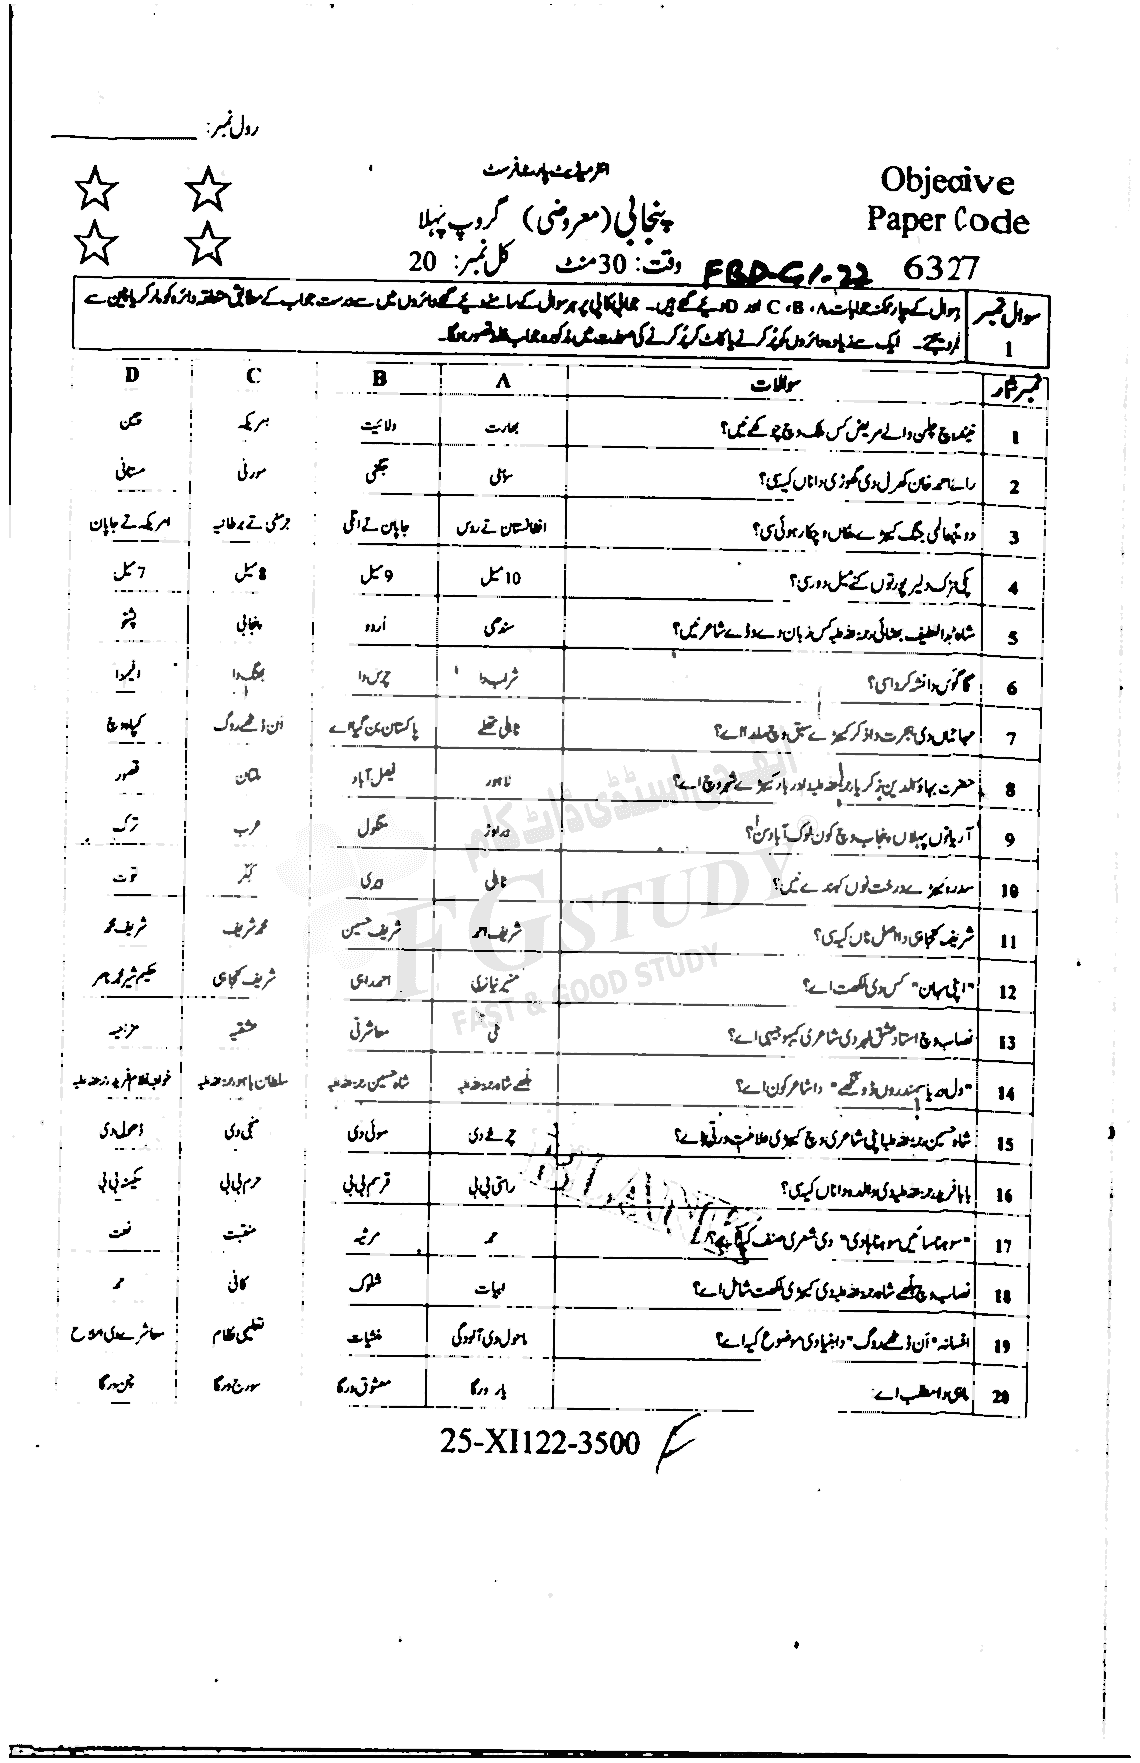 رول نمبر:
انٹرمیڈیٹ پارٹ فرسٹ
Objective
پنجابی (معروضی) گروپ پہلا
Paper Code
وقت: 30 منٹ کل نمبر: 20
FBD-G1-22
6327
سوال نمبر 1
ہر سوال کے چار ممکنہ جوابات A، B، C اور D دیے گئے ہیں۔ جوابی کاپی پر ہر سوال کے سامنے دیے گئے دائروں میں سے درست جواب کے مطابق متعلقہ دائرہ کو مارکر یا پین سے
بھر دیجیے۔ ایک سے زیادہ دائروں کو پُر کرنے یا کاٹ کر پُر کرنے کی صورت میں مذکورہ جواب غلط تصور ہوگا۔
نمبر شمار سوالات A B C D
1 نیند وچ چلن والے مریض کس ملک وچ چوکھے نیں؟ بھارت ولائیت امریکہ چین
2 رائے احمد خان کھرل دی گھوڑی دا ناں کیہ سی؟ ساوی جنگی مورنی مستانی
3 دوجی عالمی جنگ کیہڑے ملکاں وچکار ہوئی سی؟ افغانستان تے روس جاپان تے اٹلی جرمنی تے برطانیہ امریکہ تے جاپان
4 پکی سڑک دلیر پور توں کنے میل دور سی؟ 10 میل 9 میل 8 میل 7 میل
5 شاہ عبداللطیف بھٹائی رحمۃ اللہ علیہ کس زبان دے وڈے شاعر نیں؟ سندھی اُردو پنجابی پشتو
6 گاگویں دا نشہ کردا سی؟ شراب دا چرس دا بھنگ دا افیم دا
7 مہاتماں دی ہجرت دا ذکر کیہڑے سبق وچ ملدا اے؟ ٹالی تھلے پاکستان بن گیا اے اَن ڈٹھے روگ کپاہ وچ
8 حضرت بہاؤالدین زکریا رحمۃ اللہ علیہ دا دربار کیہڑے شہر وچ اے؟ لاہور فیصل آباد ملتان قصور
9 آریاواں توں پہلاں پنجاب وچ کون لوک آباد سن؟ دراوڑ منگول عرب ترک
10 سدرہ کیہڑے درخت نوں کہندے نیں؟ ٹالی بیری کیکر توت
11 شریف کنجاہی دا اصل ناں کیہ سی؟ شریف احمد شریف حسین محمد شریف شریف محمد
12 "اپنی پہچان" کس دی لکھت اے؟ منیر نیازی احمد راہی شریف کنجاہی حکیم شیر محمد ناصر
13 نصاب وچ استاد عشق لہر دی شاعری کیہو جیہی اے؟ ملی معاشرتی عشقیہ مزاحیہ
14 "دل دریا سمندروں ڈونگھے" دا شاعر کون اے؟ بلھے شاہ رحمۃ اللہ علیہ شاہ حسین رحمۃ اللہ علیہ سلطان باہو رحمۃ اللہ علیہ خواجہ غلام فرید رحمۃ اللہ علیہ
15 شاہ حسین رحمۃ اللہ علیہ اپنی شاعری وچ کیہڑی علامت ورتی اے؟ چرخے دی سوئی دی منجی دی ڈھول دی
16 بابا فرید رحمۃ اللہ علیہ دی والدہ دا ناں کیہ سی؟ راستی بی بی قرسم بی بی مریم بی بی سکینہ بی بی
17 "سوہنا سائیں سوہنا ہادی" دی شعری صنف کیہ اے؟ حمد مرثیہ منقبت نعت
18 نصاب وچ بلھے شاہ رحمۃ اللہ علیہ دی کیہڑی لکھت شامل اے؟ ابیات شلوک کافی حمد
19 افسانہ "اَن ڈٹھے روگ" دا بنیادی موضوع کیہ اے؟ ماحول دی آلودگی منشیات تعلیمی نظام معاشرے دی اصلاح
20 ماہی دا مطلب اے: یار ورگا معشوق ورگا سورج ورگا چن ورگا
25-XI122-3500
ایف جی اسٹڈی ڈاٹ کام
FG STUDY
FAST & GOOD STUDY